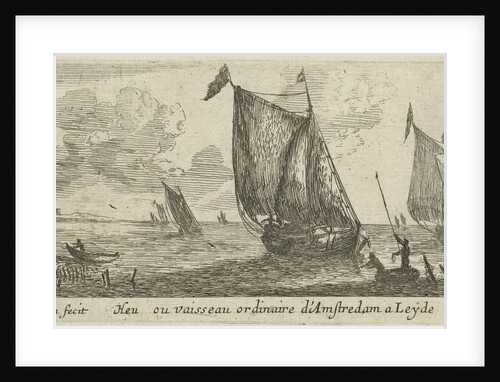 fecit Heu ou vaisseau ordinaire d'Amstredam a Leyde